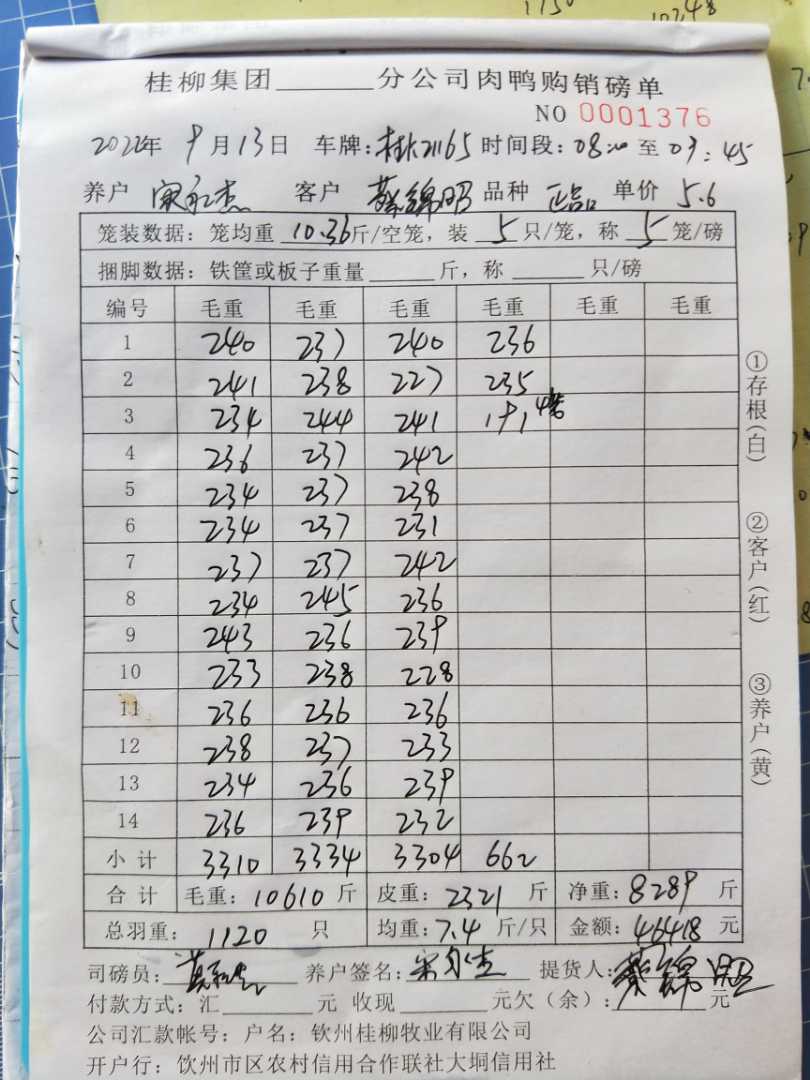 1750
10248
桂柳集团______分公司肉鸭购销磅单
NO 0001376
2022年 9月13日 车牌:桂K21165 时间段:08:20 至 09:45
养户 客户 蔡锦昭 品种 正品 单价 5.6
笼装数据:笼均重 10.36斤/空笼,装 5 只/笼,称 5 笼/磅
捆脚数据:铁筐或板子重量______斤,称______只/磅
编号 毛重 毛重 毛重 毛重 毛重 毛重
1 240 237 240 236
2 241 238 227 235
3 234 244 241 191 4笼
4 236 237 242
5 234 237 238
6 234 237 231
7 237 237 242
8 234 245 236
9 243 236 239
10 233 238 228
11 236 236 236
12 238 237 233
13 234 236 239
14 236 239 232
小计 3310 3334 3304 662
合计 毛重:10610斤 皮重:2321斤 净重:8289斤
总羽重:1120 只 均重:7.4斤/只 金额:46418元
司磅员: 养户签名: 提货人:蔡锦昭
付款方式:汇______元 收现______元欠(余):______元
公司汇款帐号:户名:钦州桂柳牧业有限公司
开户行:饮州市区农村信用合作联社大垌信用社
①存根(白)
②客户(红)
③养户(黄)